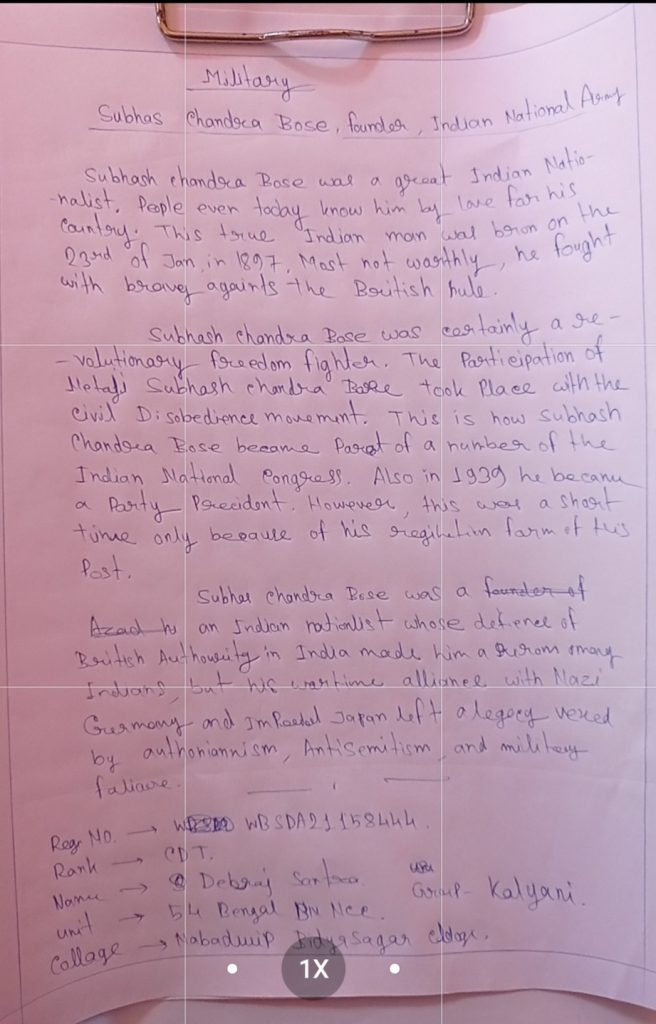 Military
Subhas Chandra Bose, founder, Indian National Army
Subhash chandra Bose was a great Indian Natio-
-nalist. People even today know him by love for his
Country. This true Indian man was bron on the
23rd of Jan, in 1897. Most not warthly, he fought
with bravey againts the British hule.
Subhash chandra Bose was certainly a re-
-volutionary freedom fighter. The Participation of
Netaji Subhash chandra Bose took Place with the
Civil Disobedience movement. This is how Subhash
Chandra Bose became Parat of a number of the
Indian National Congress. Also in 1939 he became
a Party Precident. However, this was a short
time only because of his farm of this
Post.
Subhas Chandra Bose was a founder of
Azad h an Indian nationlist whose defience of
British Authourity in India made him a among
Indians, but his wartime alliance with Nazi
Gurmony and Japan left a legecy vexed
by authoriannism, AntiSemitism, and militery
faliare.
Reg NO. → WBSDA21158444.
Rank → CDT.
Name → Debraj Santra. Group- Kalyani.
unit → 54 Bengal BN Ncc.
Collage → Nabadwip Bidyasagar Collage.
1X